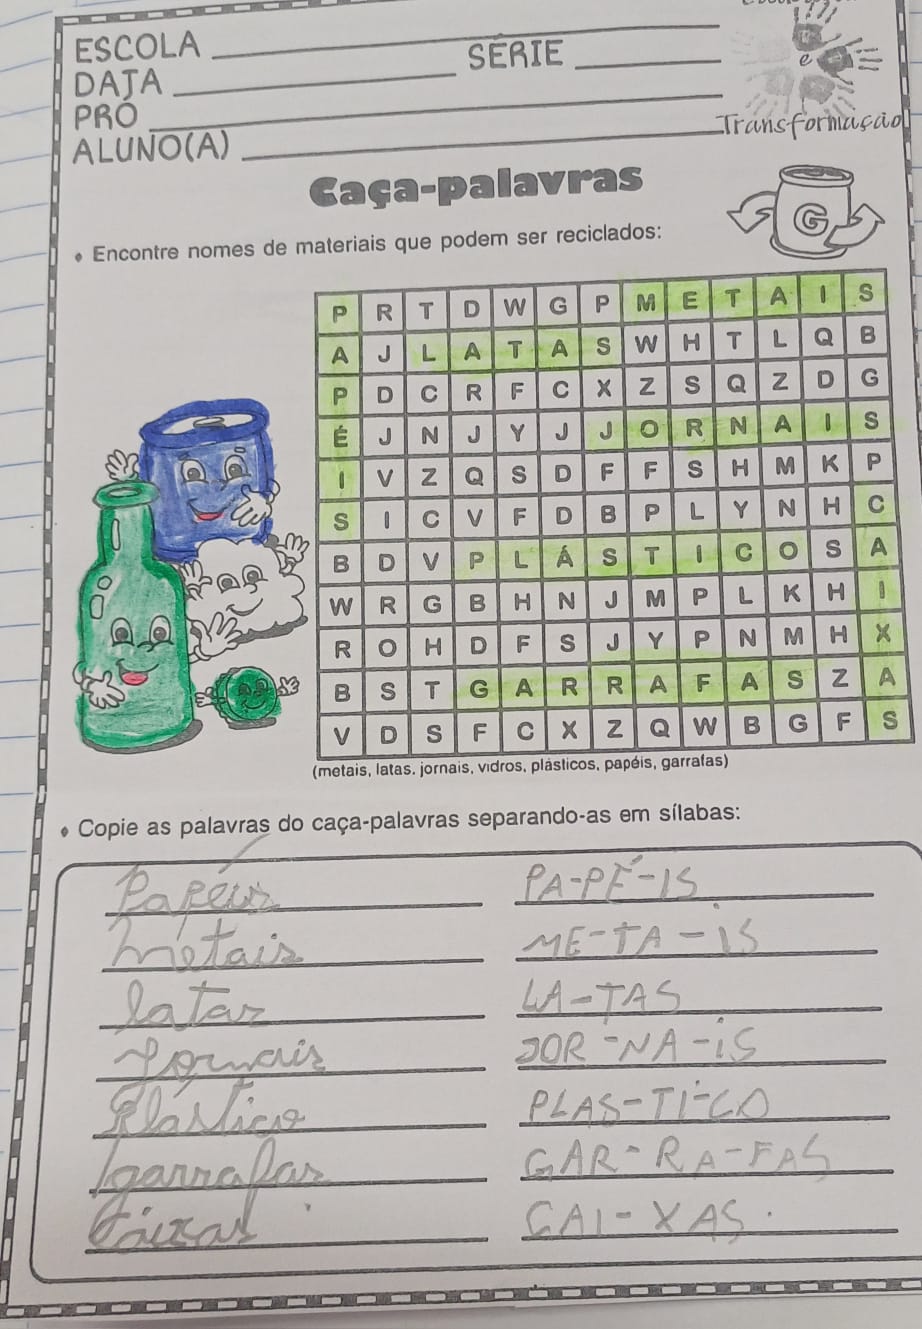 ESCOLA
DATA SERIE
PRÓ
ALUNO(A)
e
Transformação
Caça-palavras
G
• Encontre nomes de materiais que podem ser reciclados:
P R T D W G P M E T A I S
A J L A T A S W H T L Q B
P D C R F C X Z S Q Z D G
É J N J Y J J O R N A I S
I V Z Q S D F F S H M K P
S I C V F D B P L Y N H C
B D V P L Á S T I C O S A
W R G B H N J M P L K H I
R O H D F S J Y P N M H X
B S T G A R R A F A S Z A
V D S F C X Z Q W B G F S
(metais, latas. jornais, vidros, plásticos, papéis, garrafas)
• Copie as palavras do caça-palavras separando-as em sílabas:
Papeis PA-PÉ-IS
metais ME-TA-iS
latas LA-TAS
Jornais JOR-NA-iS
Plástico PLAS-TI-CO
garrafas GAR-RA-FAS
Caixas CAI-XAS.